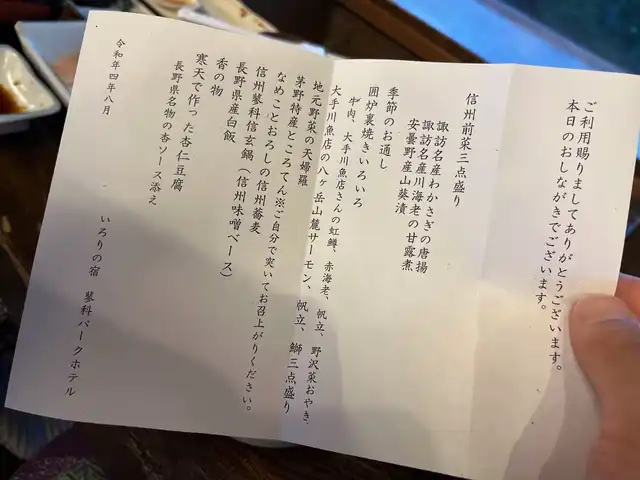 ご利用賜りましてありがとうございます。
本日のおしながきでございます。
信州前菜三点盛り
諏訪名産わかさぎの唐揚
諏訪名産川海老の甘露煮
安曇野産山葵漬
季節のお通し
囲炉裏焼きいろいろ
牛肉、大手川魚店さんの虹鱒、赤海老、帆立、野沢菜おやき、
大手川魚店の八ヶ岳山麓サーモン、帆立、鰤三点盛り
地元野菜の天婦羅
茅野特産ところてん※ご自分で突いてお召上がりください。
なめことおろしの信州蕎麦
信州蓼科信玄鍋(信州味噌ベース)
長野県産白飯
香の物
寒天で作った杏仁豆腐
長野県名物の杏ソース添え
令和年四年八月
いろりの宿 蓼科パークホテル